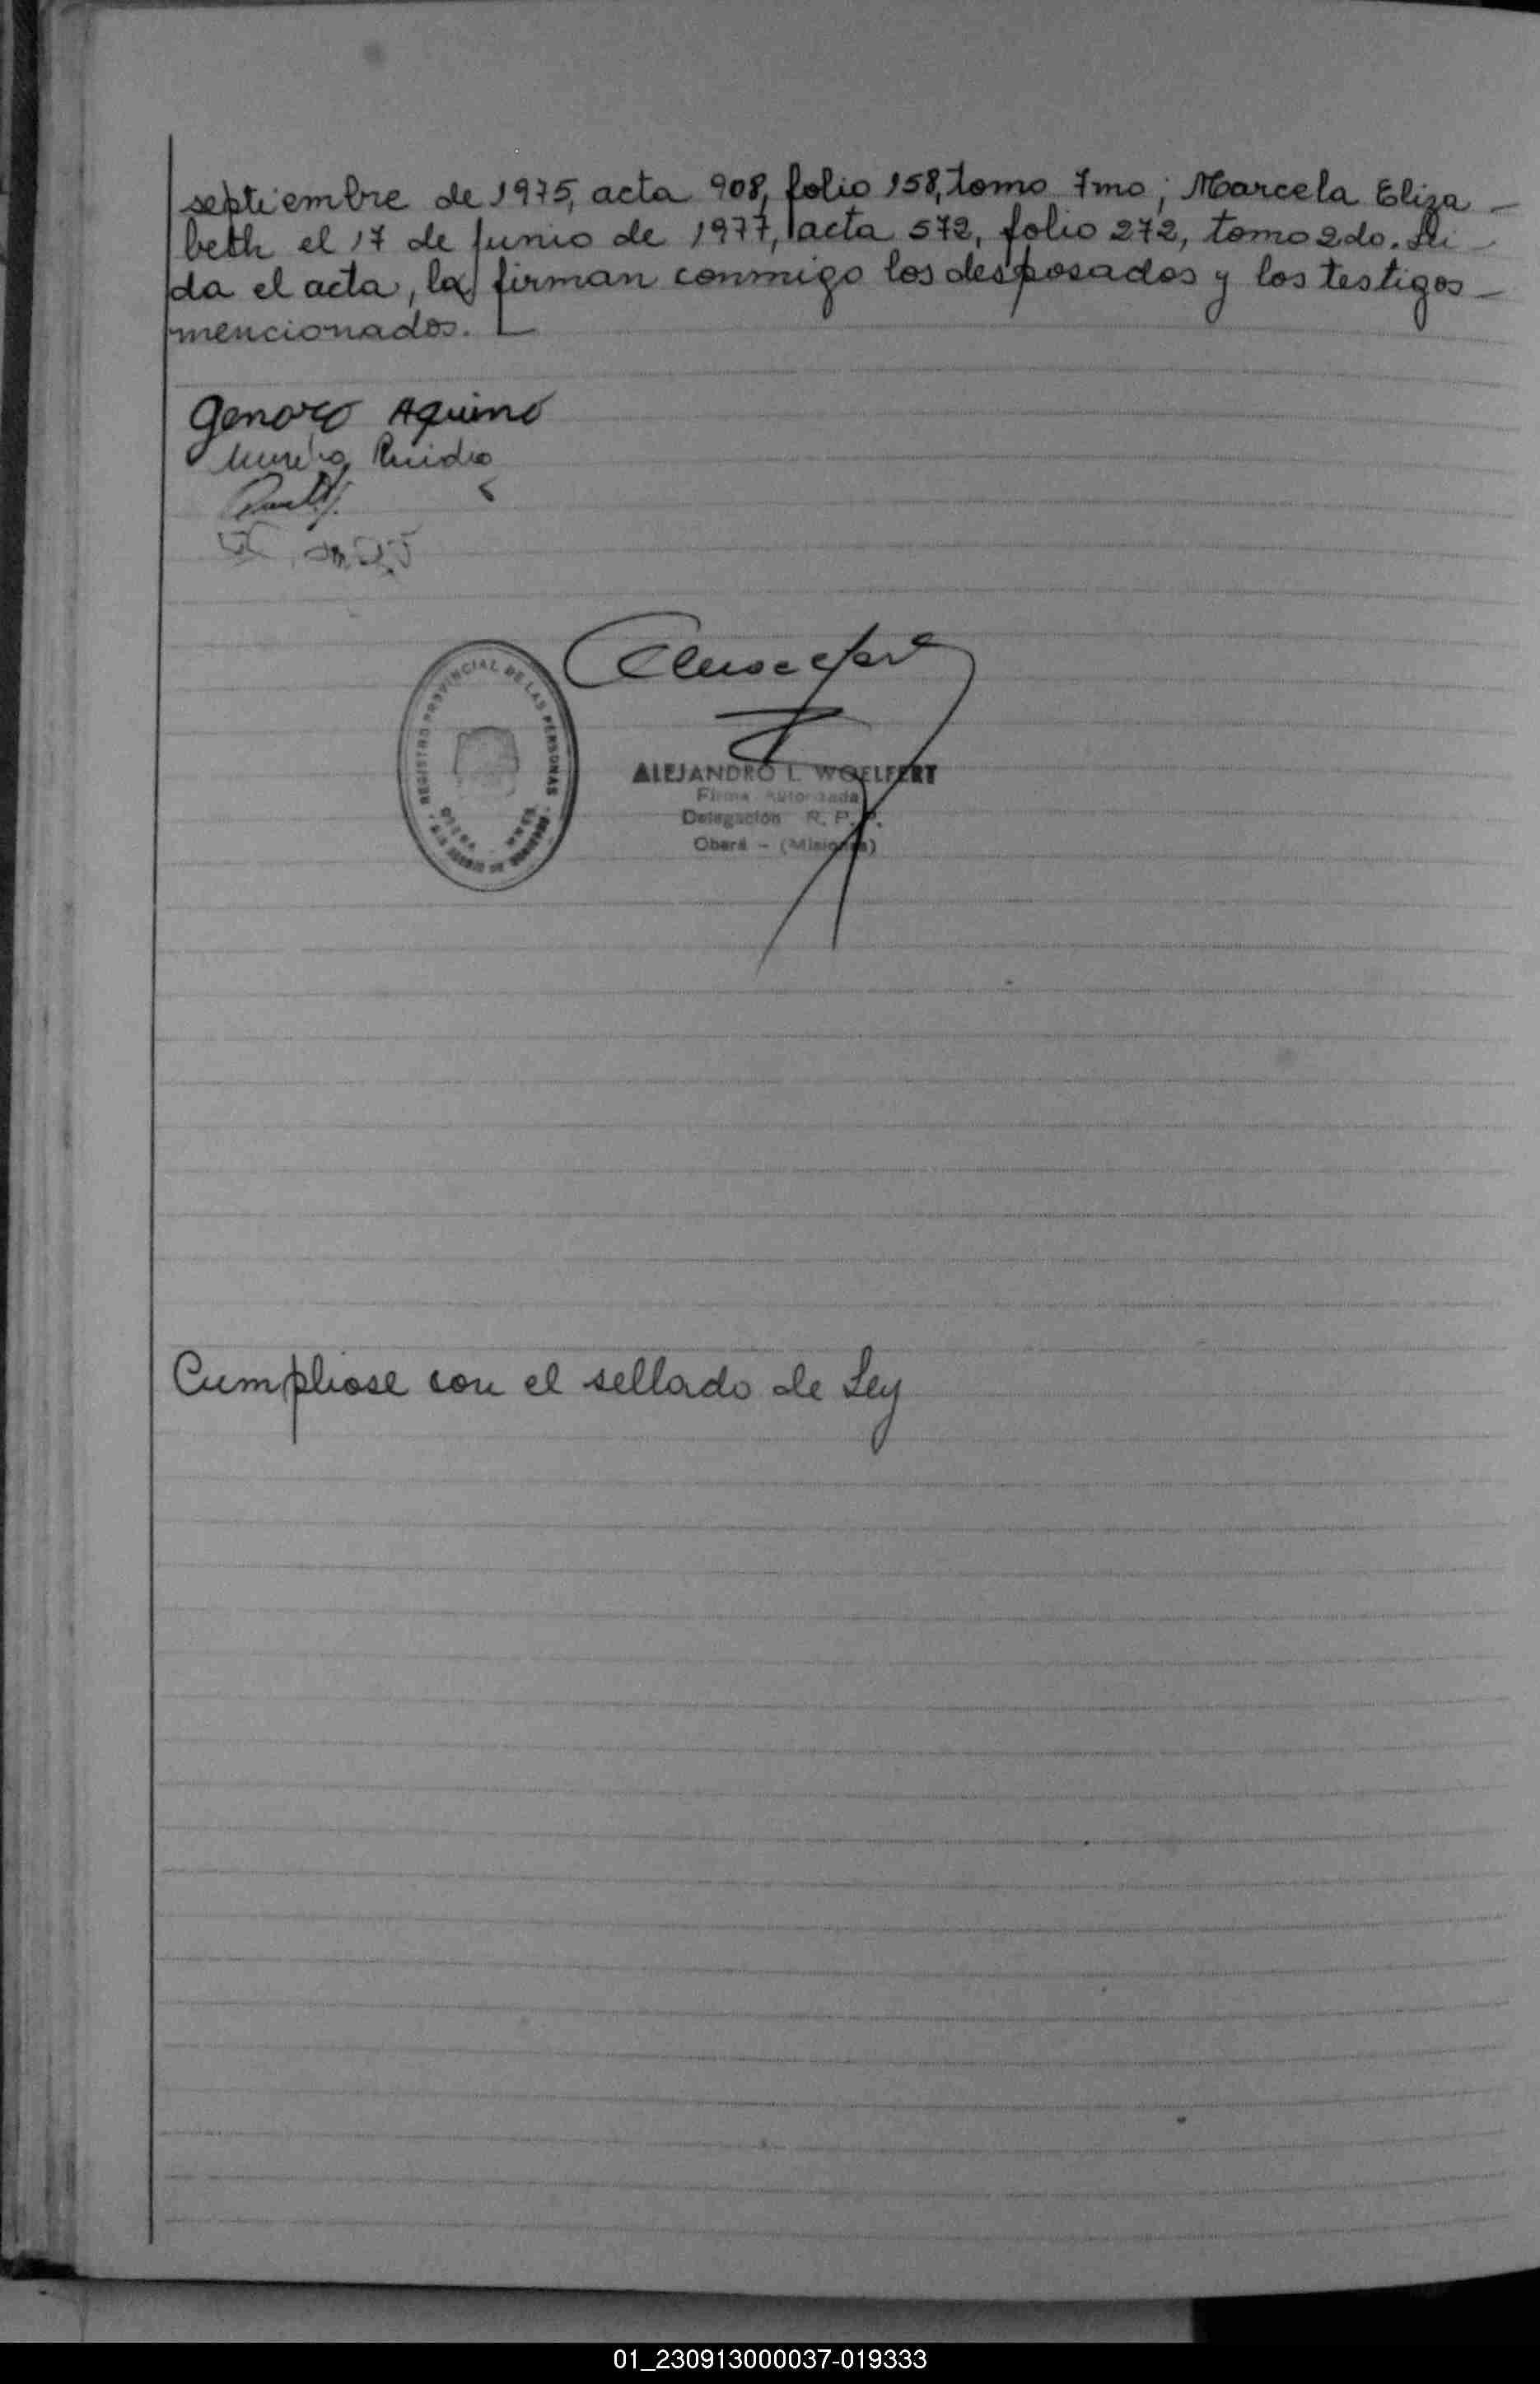 septiembre de 1975, acta 908, folio 158, tomo 7mo; Marcela Eliza-
beth el 17 de Junio de 1977, acta 572, folio 272, tomo 2do. Leí-
da el acta, la firman conmigo los desposados y los testigos-
mencionados.
Genaro Aquino
REGISTRO PROVINCIAL DE LAS PERSONAS
ALEJANDRO L. WOELFERT
Firma Autorizada
Delegación R. P. P.
Oberá - (Misiones)
Cumpliose con el sellado de Ley
01_230913000037-019333